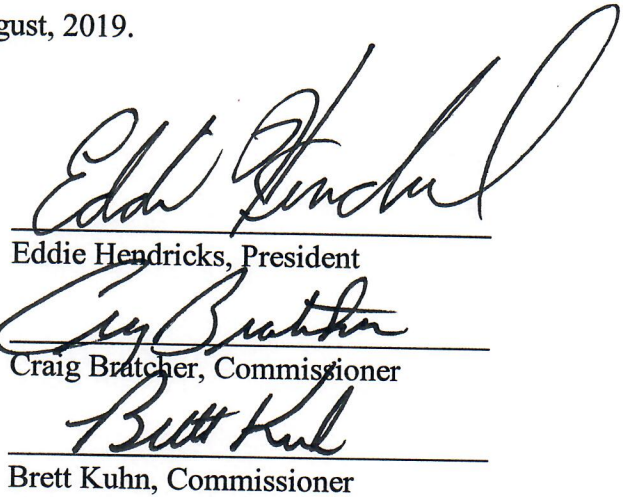 gust, 2019.
Eddie Hendricks
Eddie Hendricks, President
Craig Bratcher
Craig Bratcher, Commissioner
Brett Kuhn
Brett Kuhn, Commissioner